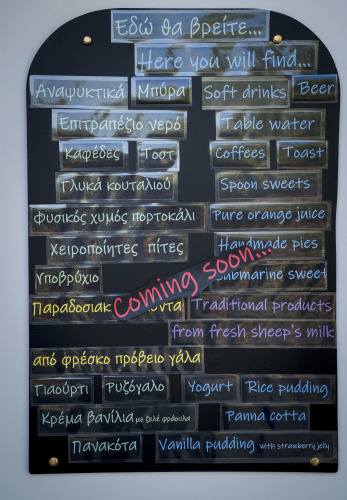 Εδώ θα βρείτε...
Here you will find...
Αναψυκτικά Μπύρα Soft drinks Beer
Επιτραπέζιο νερό Table water
Καφέδες Τοστ Coffees Toast
Γλυκά κουταλιού Spoon sweets
Φυσικός χυμός πορτοκάλι Pure orange juice
Χειροποίητες πίτες Handmade pies
Υποβρύχιο Submarine sweet
Coming soon...
Traditional products
from fresh sheep's milk
από φρέσκο πρόβειο γάλα
Γιαούρτι Ρυζόγαλο Yogurt Rice pudding
Κρέμα βανίλια με ζελέ φράουλα Panna cotta
Πανακότα Vanilla pudding with strawberry jelly